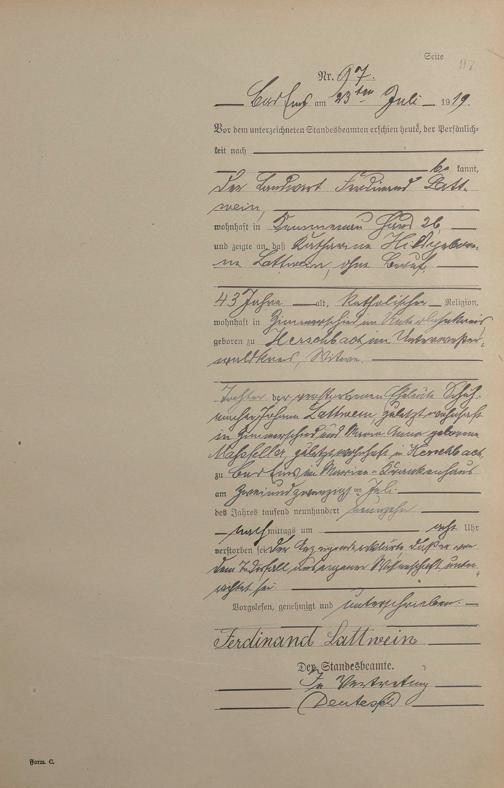 Seite 97
Nr. 97.
Bad Ems am 23ten Juli 1919.
Vor dem unterzeichneten Standesbeamten erschien heute, der Persönlich-
keit nach
be kannt,
der Landwirt Ferdinand Latt-
wein,
wohnhaft in Kemmenau Haus 26,
und zeigte an, daß Katharina Hilf gebore-
ne Lattwein, ohne Beruf,
43 Jahre alt, katholischer Religion,
wohnhaft in Zimmerschied im Unterlahnkreis
geboren zu Herschbach im Unterwester-
waldkreis, Witwe
Tochter der verstorbenen Eheleute Schuh-
macher Johann Lattwein, zuletzt wohnhaft
in Zimmerschied und Maria Anna geborene
zuletzt wohnhaft in Herschbach,
zu Bad Ems im Marien-Krankenhaus
am zweiundzwanzigsten Juli
des Jahres tausend neunhundert neunzehn
nachmittags um acht Uhr
verstorben sei. Der Anzeigende erklärte, daß er von
dem Todesfall aus eigener Wissenschaft unter-
richtet sei.
Vorgelesen, genehmigt und unterschrieben.
Ferdinand Lattwein
Der Standesbeamte.
In Vertretung
Form. C.